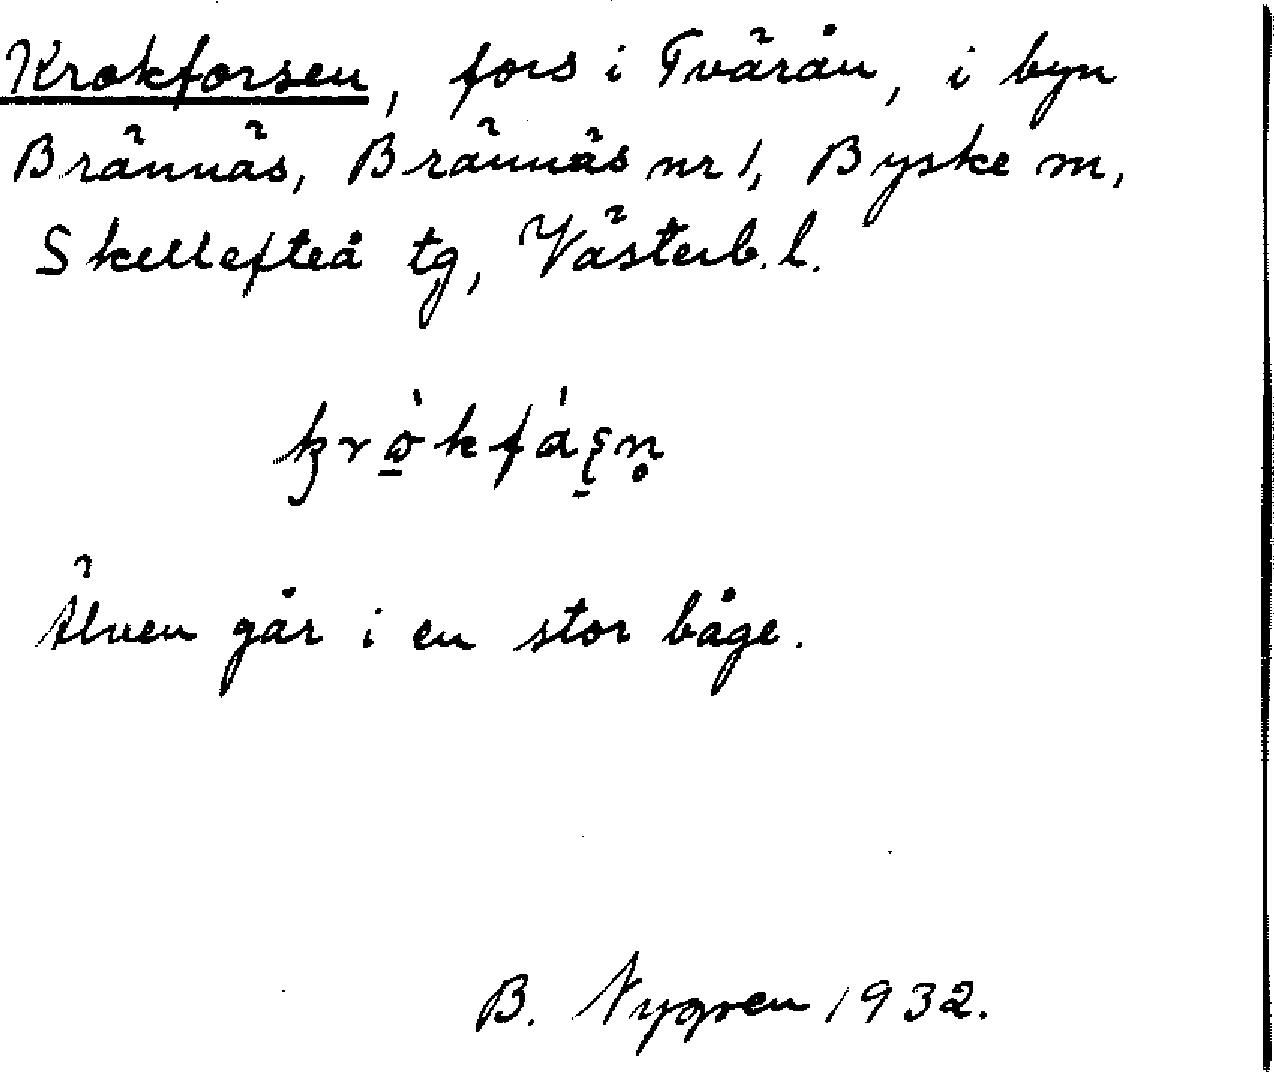 Krokforsen, fors i Tvärån, i byn
Brännäs, Brännäs nr 1, Byske sn,
Skellefteå tg, Västerb. l.
Älven går i en stor båge.
B. Nygren 1932.